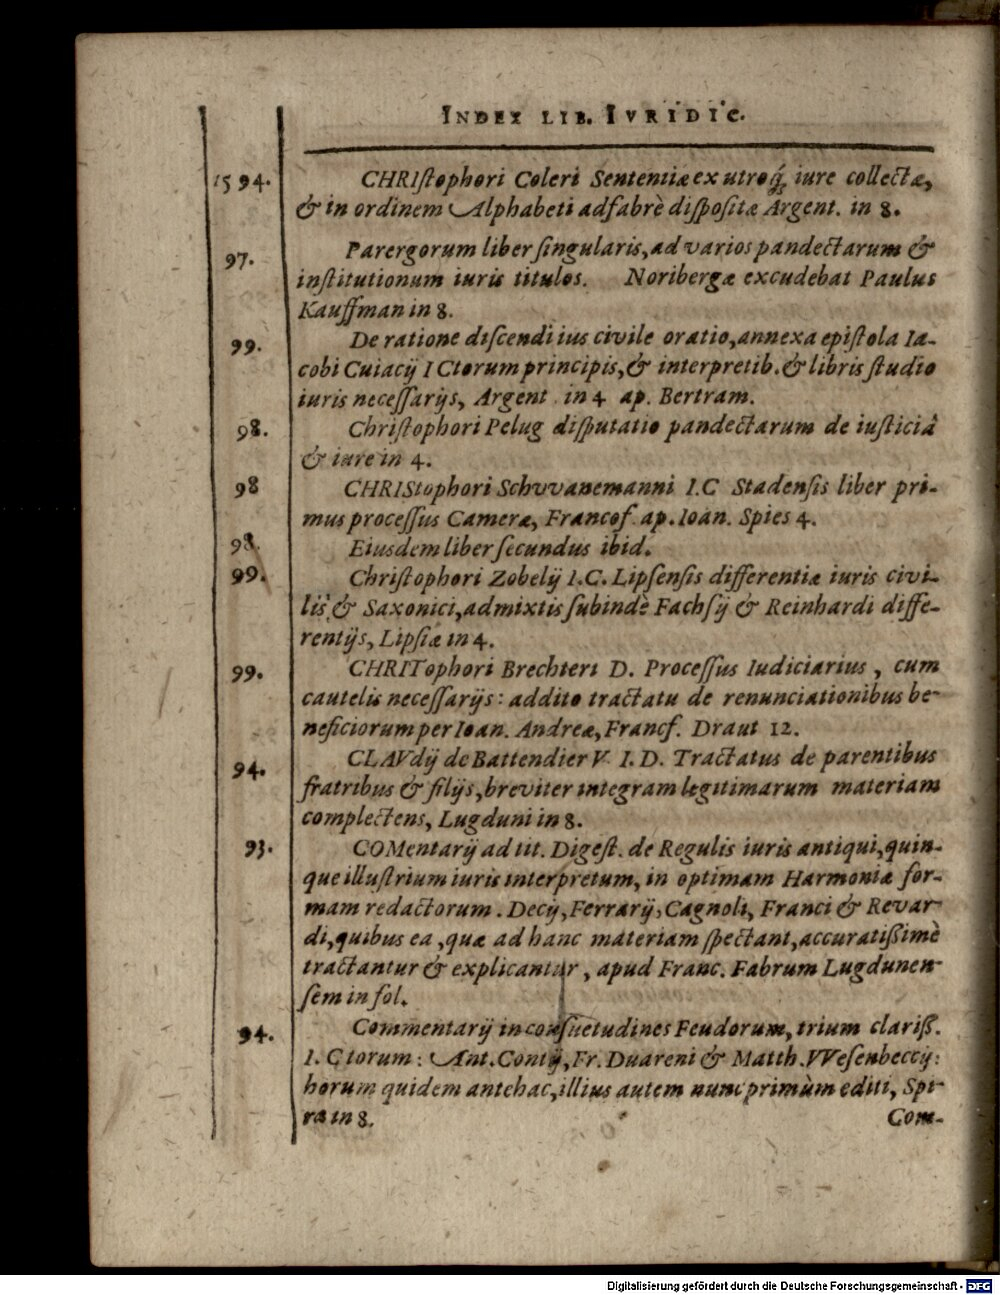 INDEX LIB. IVRIDIC.
1594. CHRIſtophori Coleri Sententiæ ex utroq́; iure collectæ,
& in ordinem Alphabeti adfabrè diſpoſitæ Argent. in 8.
97. Parergorum liber ſingularis, ad varios pandectarum &
inſtitutionum iuris titulos. Noribergæ excudebat Paulus
Kauffman in 8.
99. De ratione diſcendi ius civile oratio, annexa epiſtola Ia-
cobi Cuiacij ICtorum principis, & interpretib. & libris ſtudio
iuris neceſſarijs, Argent. in 4 ap. Bertram.
98. Chriſtophori Pelug diſputatio pandectarum de iuſticiâ
& iure in 4.
98 CHRIStophori Schvvanemanni I.C Stadenſis liber pri-
mus proceſſus Cameræ, Francof. ap. Ioan. Spies 4.
98. Eiusdem liber ſecundus ibid.
99. Chriſtophori Zobelij I.C. Lipſenſis differentiæ iuris civi-
lis & Saxonici, admixtis ſubindè Fachſij & Reinhardi diffe-
rentijs, Lipſiæ in 4.
99. CHRITophori Brechteri D. Proceſſus Iudiciarius, cum
cautelis neceſſarijs: addito tractatu de renunciationibus be-
neficiorum per Ioan. Andreæ, Francf. Draut 12.
94. CLAVdij de Battendier V. I. D. Tractatus de parentibus
fratribus & filijs, breviter integram legitimarum materiam
complectens, Lugduni in 8.
93. COMentarij ad tit. Digeſt. de Regulis iuris antiqui, quin-
que illuſtrium iuris interpretum, in optimam Harmoniæ for-
mam redactorum. Decij, Ferrarij, Cagnoli, Franci & Revar-
di, quibus ea, quæ ad hanc materiam ſpectant, accuratißimè
tractantur & explicantur, apud Franc. Fabrum Lugdunen-
ſem in fol.
94. Commentarij in conſuetudines Feudorum, trium clariß.
I. Ctorum: Ant. Contij, Fr. Duareni & Matth. VVeſenbeccij:
horum quidem antehac, illius autem nunc primùm editi, Spi-
ra in 8. Com-
Digitalisierung gefördert durch die Deutsche Forschungsgemeinschaft - DFG